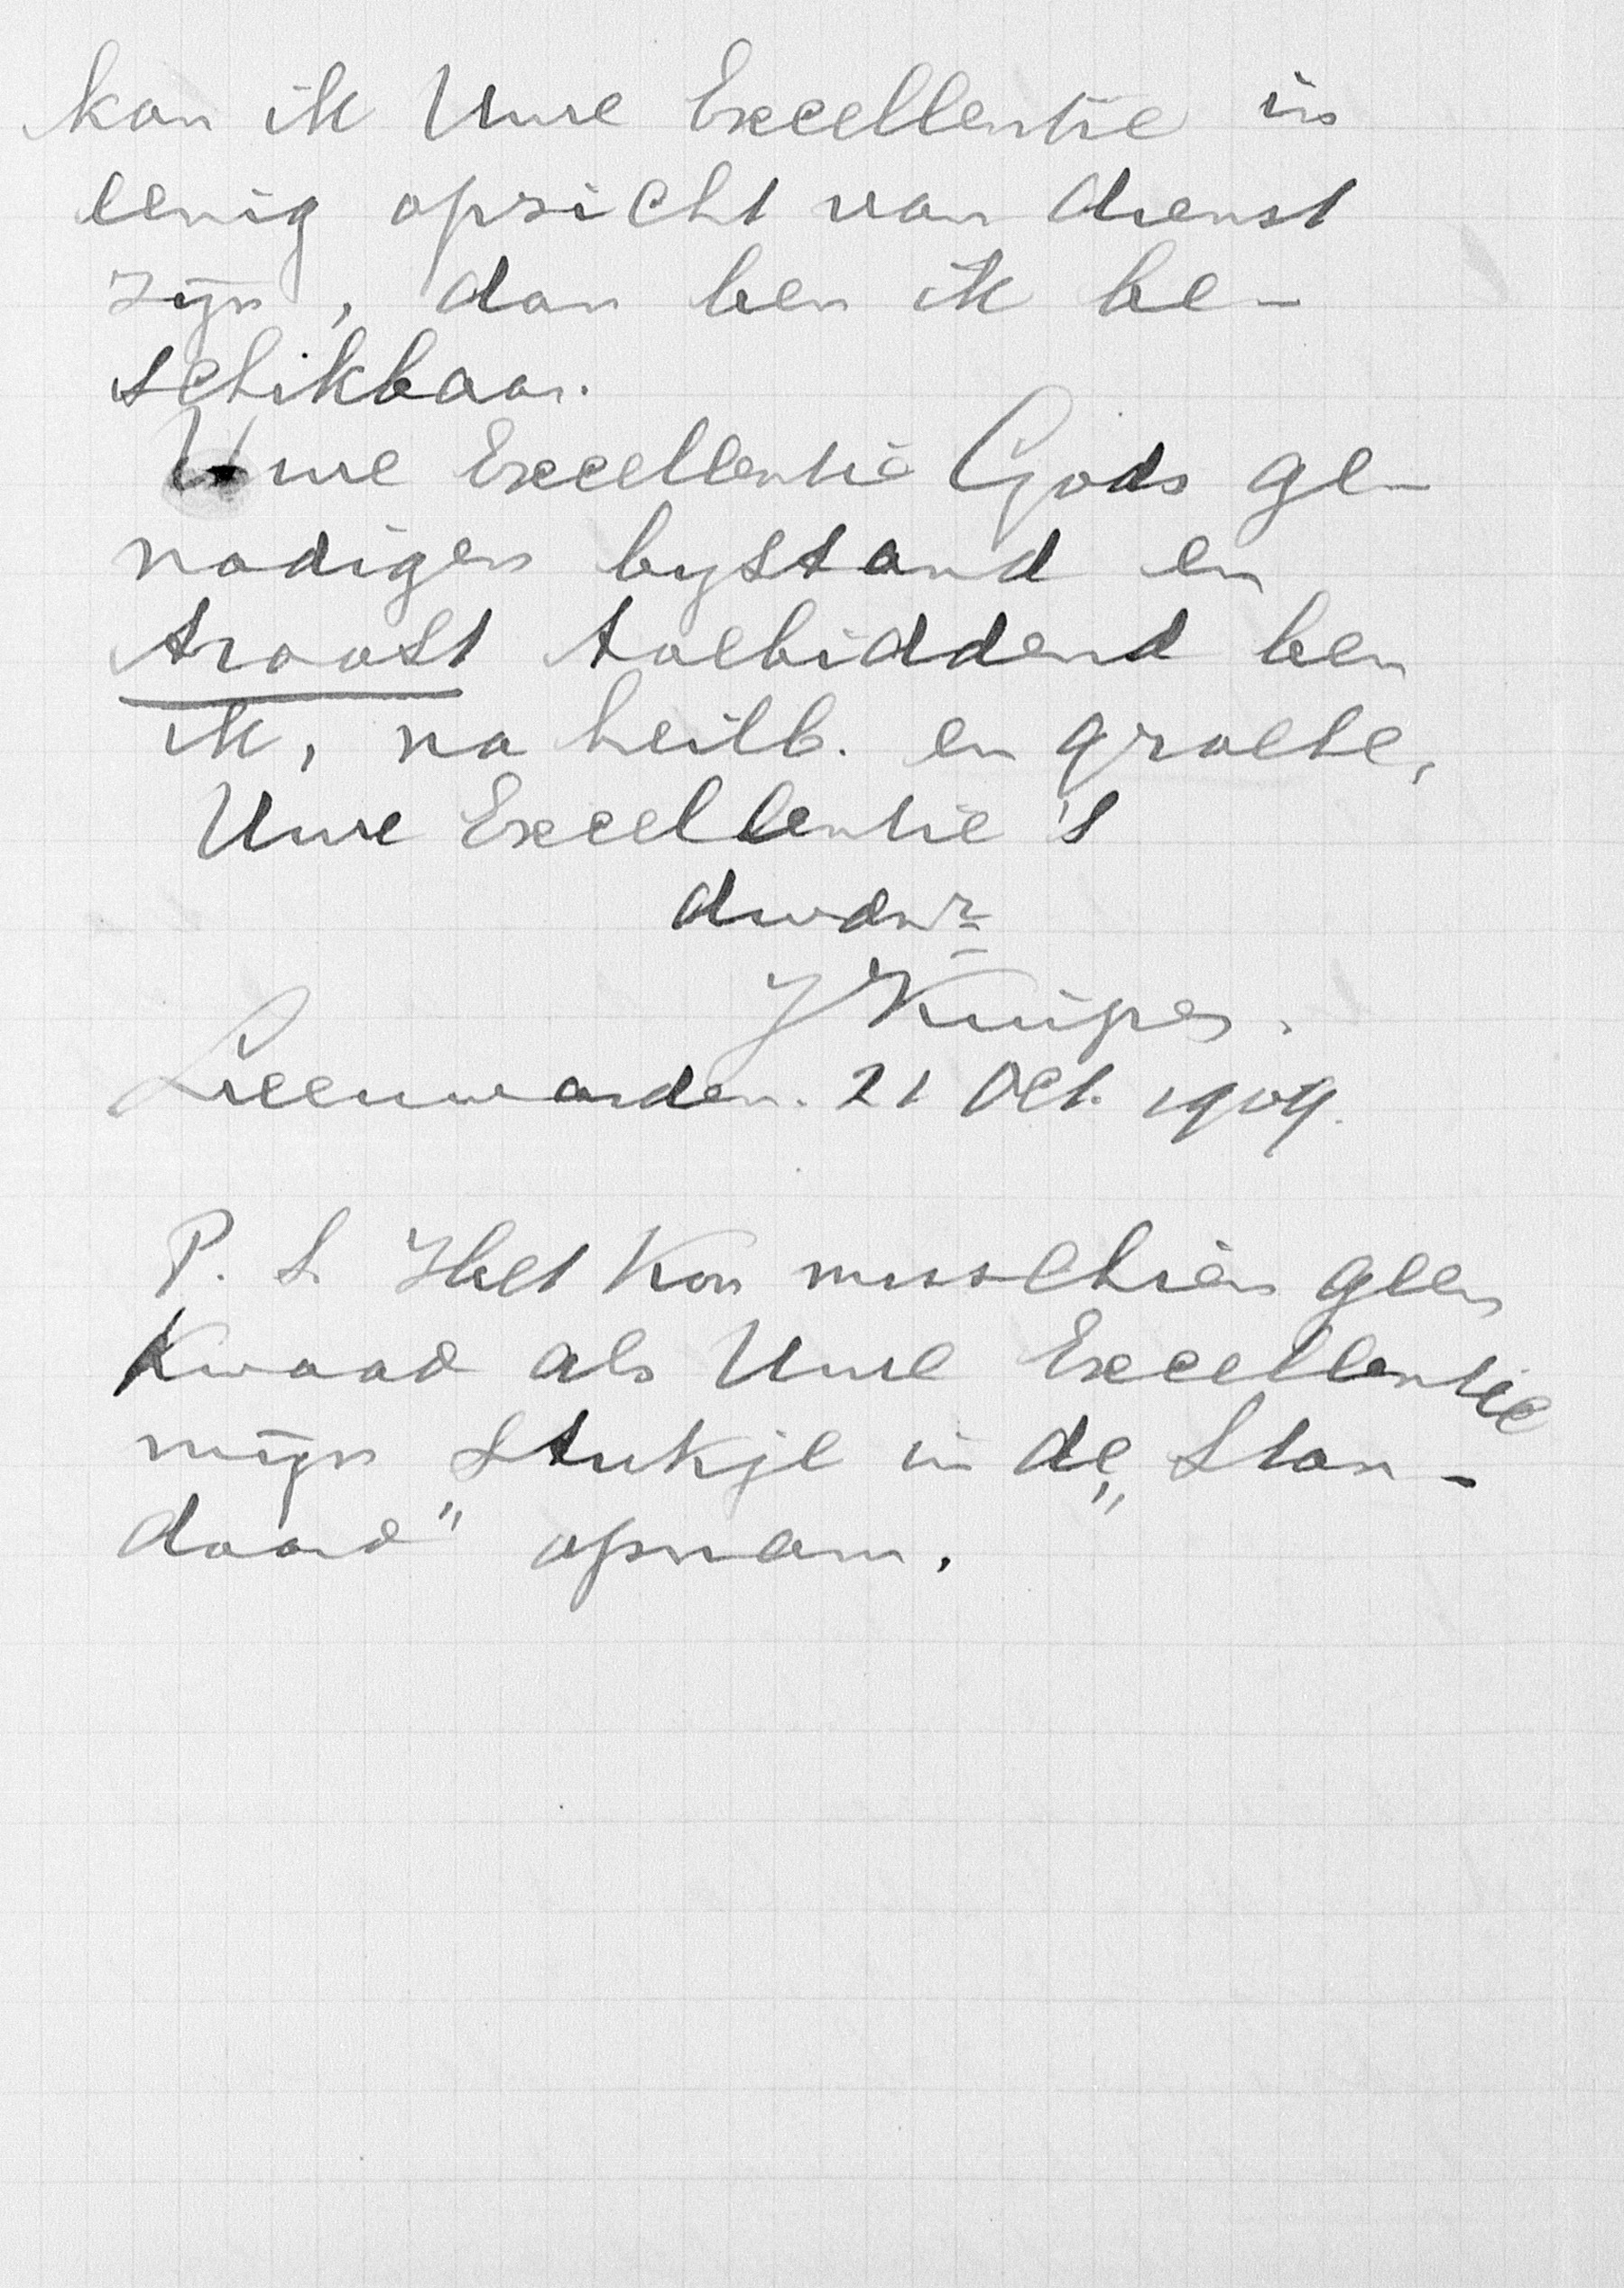 kan ik Uwe Excellentie in
eenig opzicht van dienst
zijn, dan ben ik be-
schikbaar.
Uwe Excellentie Gods ge-
nadigen bystand en
troost toebiddend ben
ik, na heilb. en groete,
Uwe Excellentie's
dwdnr
J Kuipers.
Leeuwarden. 21 Oct. 1909.
P. S. Het kon misschien geen
kwaad als Uwe Excellentie
mijn stukje in de „Stan-
daard" opnam.